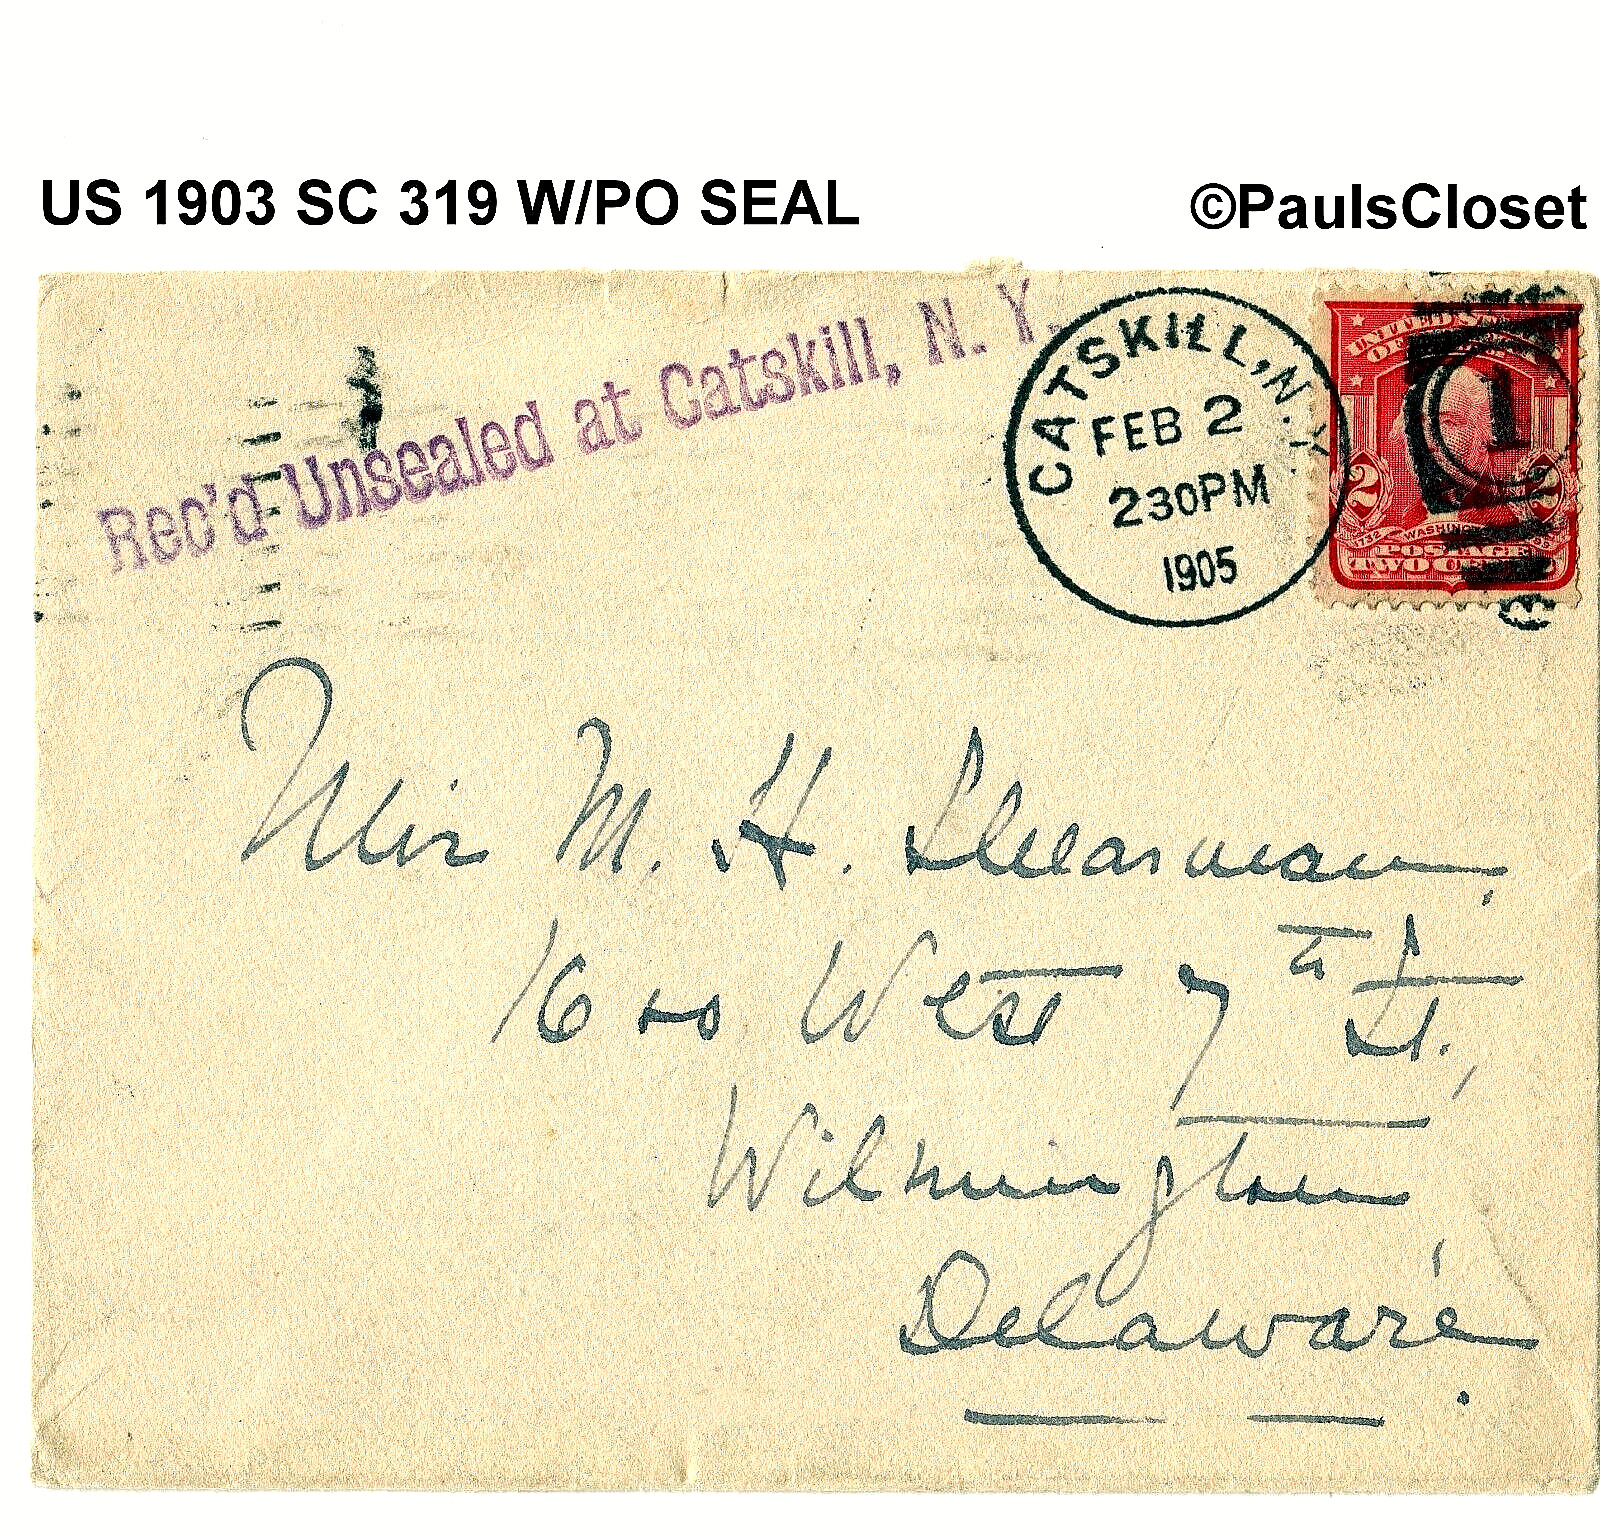 US 1903 SC 319 W/PO SEAL ©PaulsCloset
Rec'd Unsealed at Catskill, N. Y.
CATSKILL, N.Y.
FEB 2
230PM
1905
UNITED STATES
OF
1
2 2
1732 WASHINGTON
POSTAGE
TWO CENTS
Miss M. H. Shearman,
1600 West 7th St.,
Wilmington,
Delaware.